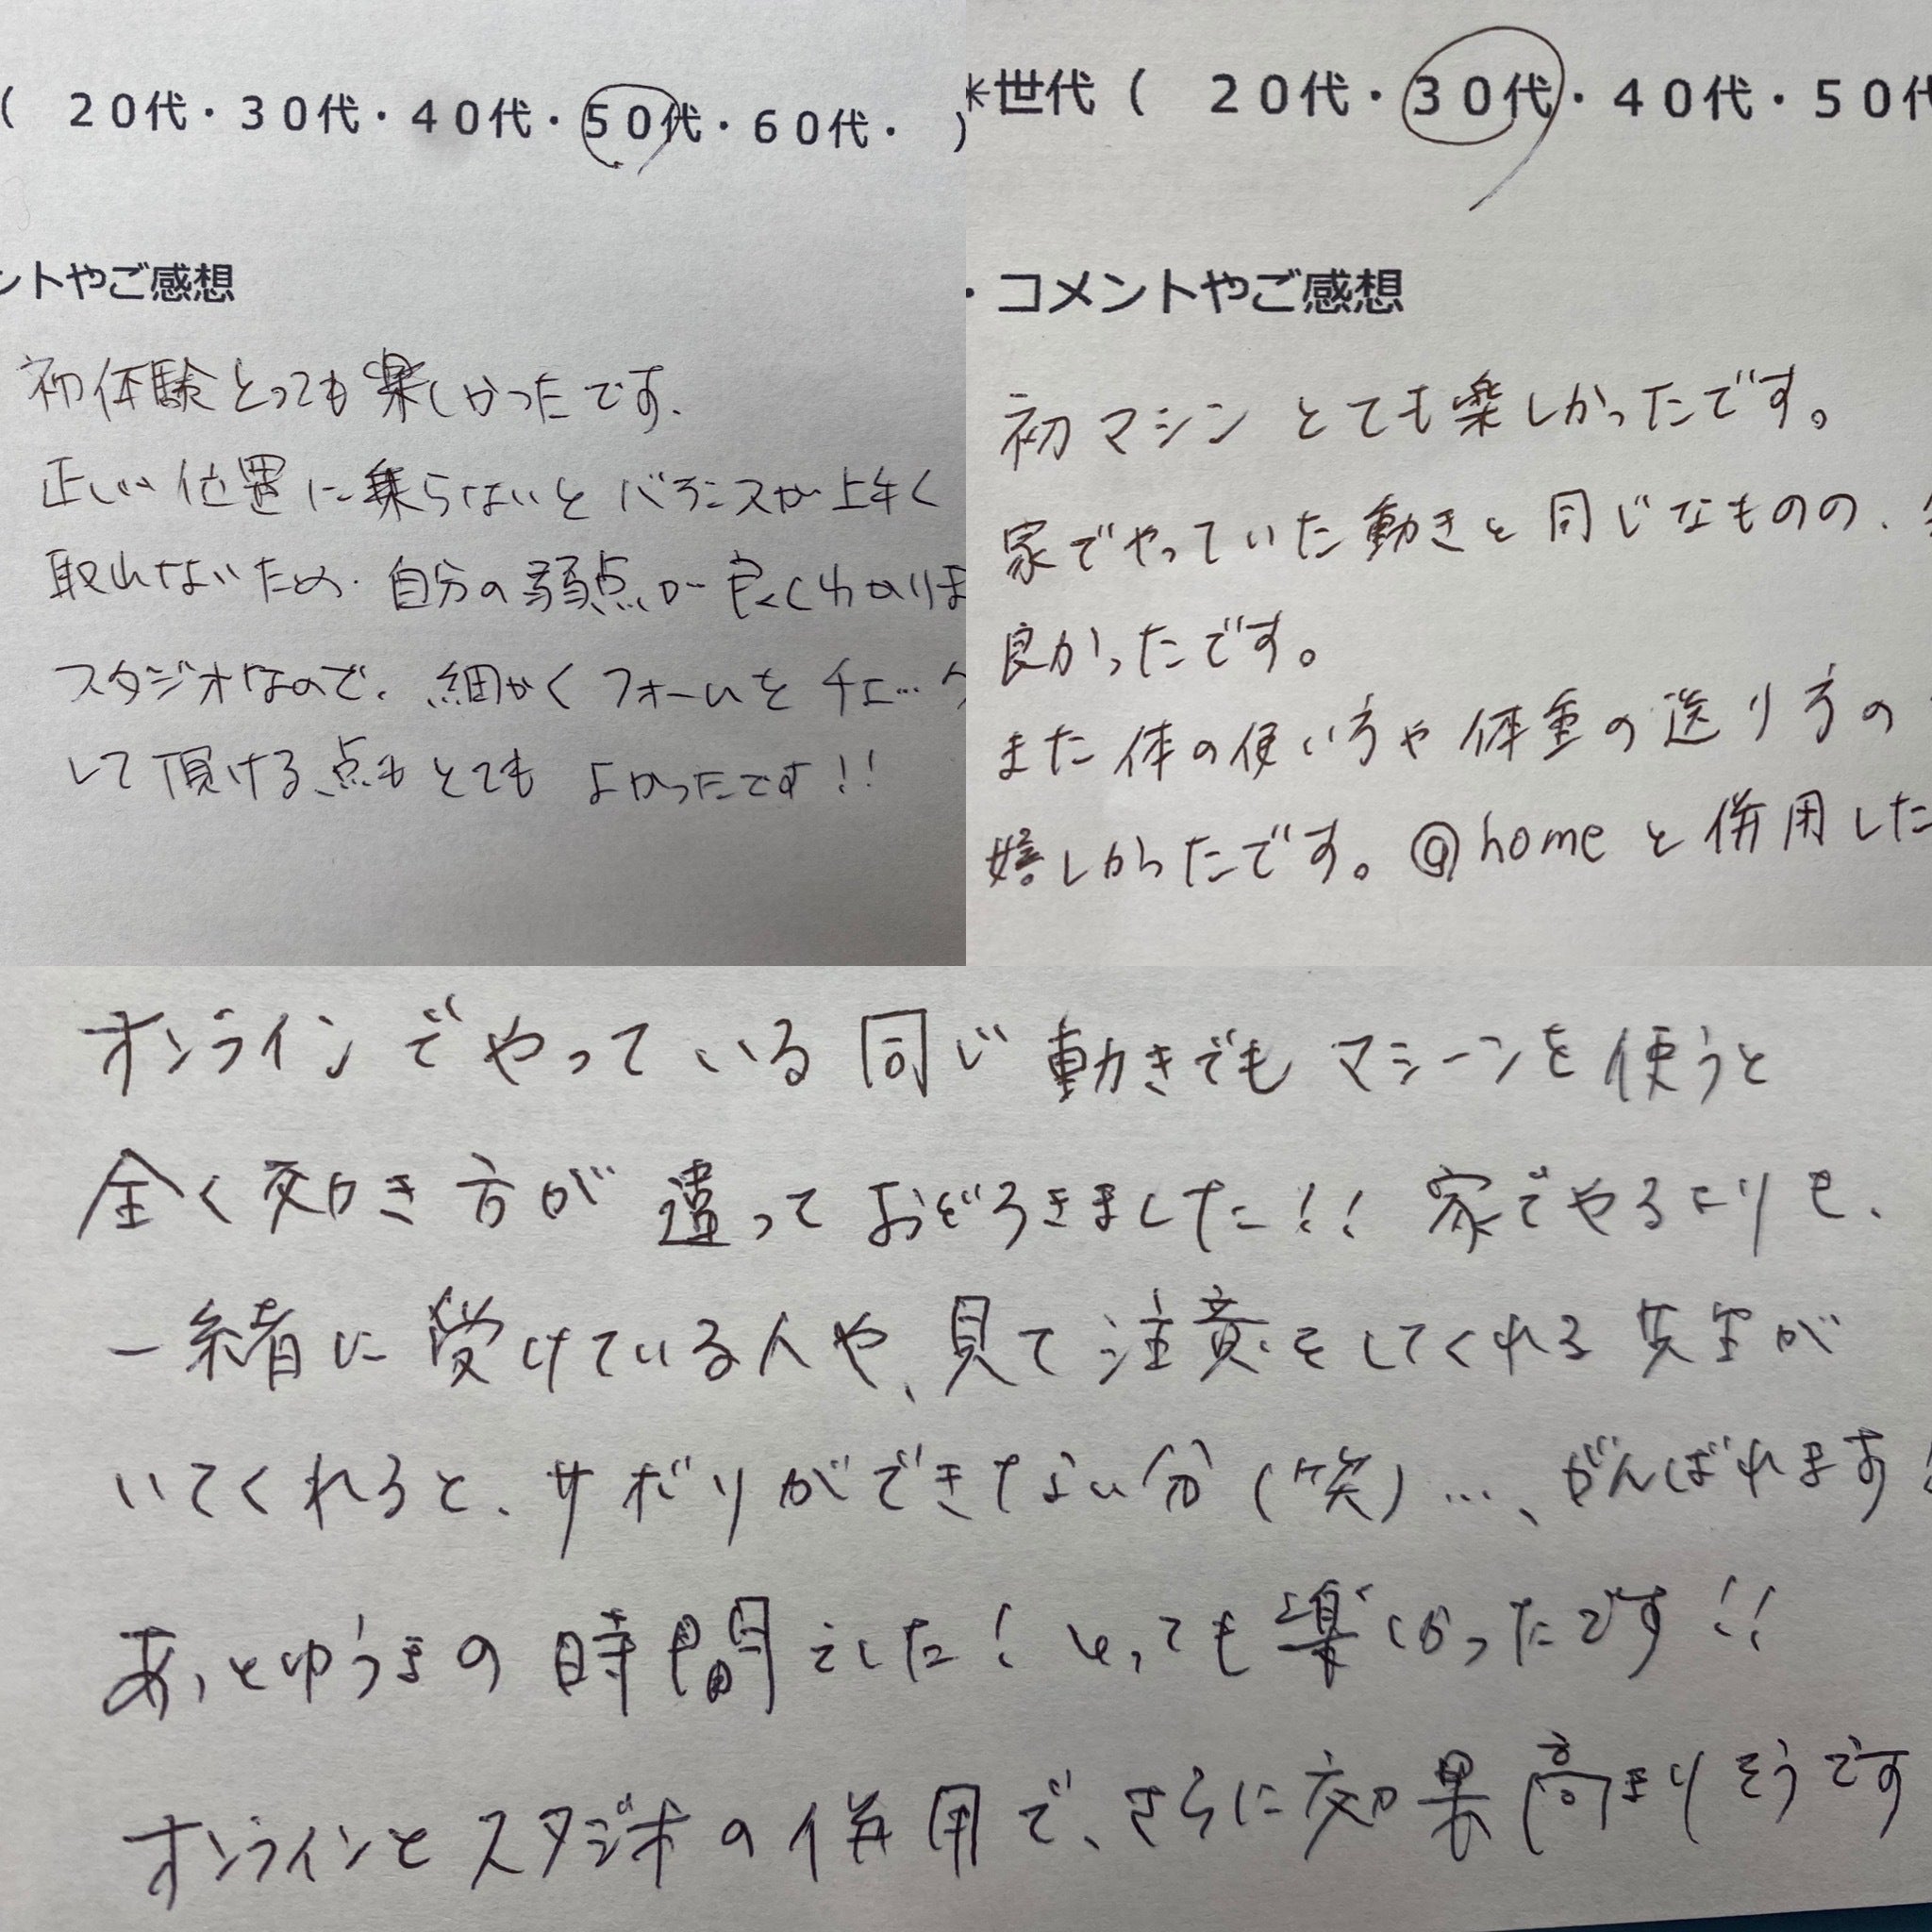 ( 20代・30代・40代・50代・60代・ )
ントやご感想
初体験とっても楽しかったです.
正しい位置に乗らないとバランスが上手く
取れないため.自分の弱点が良くわかりま
スタジオなので.細かくフォームをチェック
して頂ける点もとても よかったです!!
*世代( 20代・30代・40代・50代
・コメントやご感想
初マシン とても楽しかったです。
家でやっていた動きと同じなものの、
良かったです。
また体の使い方や体重の送り方の
嬉しかったです。@homeと併用した
オンラインでやっている同じ動きでもマシーンを使うと
全く効き方が違っておどろきました!! 家でやるよりも、
一緒に受けている人や、見て注意をしてくれる先生が
いてくれると、サボりができない分(笑)…、がんばれます!
あっとゆうまの時間でした!とっても楽しかったです!!
オンラインとスタジオの併用で、さらに効果高まりそうです